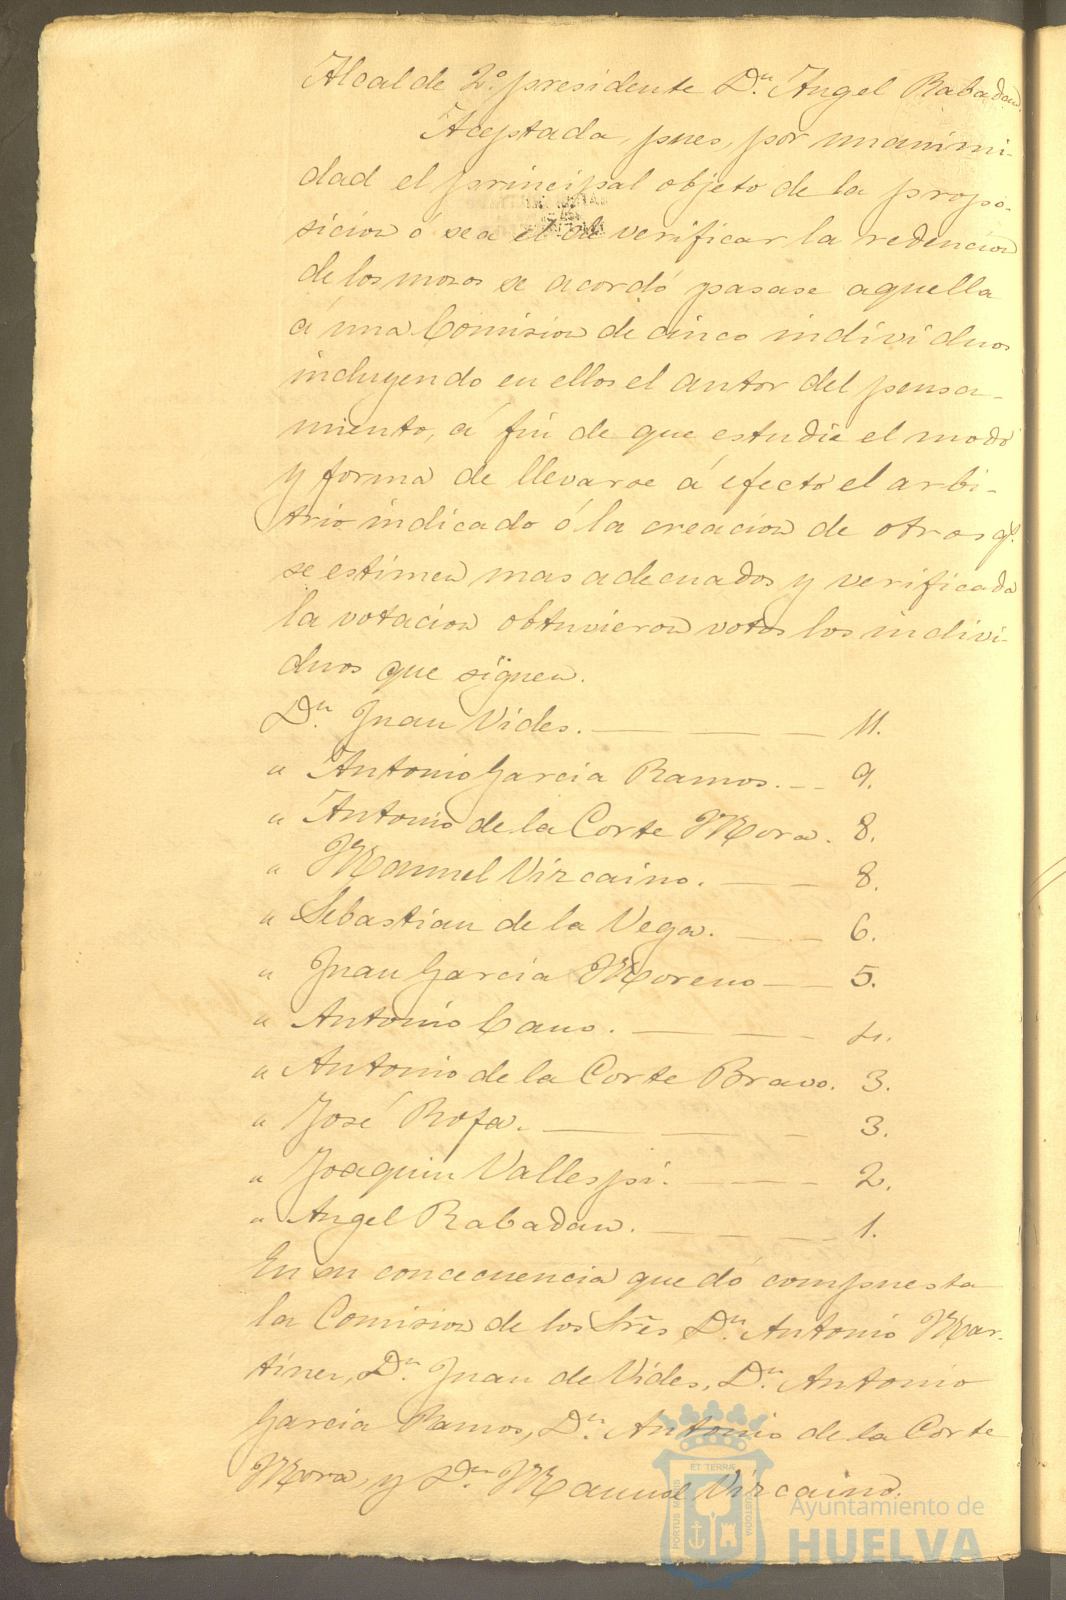 Alcalde 2º presidente Dn. Angel Rabadan.
Aceptada, pues, por unanimi-
dad el principal objeto de la propo-
sicion ó sea el de verificar la redencion
de los mozos se acordó pasase aquella
á una Comision de cinco individuos
incluyendo en ellos el autor del pensa-
miento, á fin de que estudie el modo
y forma de llevarse á efecto el arbi-
trio indicado ó la creacion de otros q.
se estimen mas adecuados y verificada
la votacion obtuvieron votos los indivi-
duos que siguen.
Dn. Juan Vides. — — — 11.
" Antonio Garcia Ramos. — — 9.
" Antonio de la Corte Mora. 8.
" Manuel Vizcaino. — — 8.
" Sebastian de la Vega. — — 6.
" Juan Garcia Moreno — — 5.
" Antonio Cano. — — — 4.
" Antonio de la Corte Bravo. 3.
" José Rofa. — — — 3.
" Joaquin Vallespi. — — — 2.
" Angel Rabadan. — — — 1.
En su concecuencia quedó compuesta
la Comision de los Sres Dn. Antonio Mar-
tinez, Dn. Juan de Vides, Dn. Antonio
Garcia Ramos, Dn. Antonio de la Corte
Mora, y Dn. Manuel Vizcaino.
ET TERRÆ
PORTUS MARIS
CUSTODIA
Ayuntamiento de
HUELVA